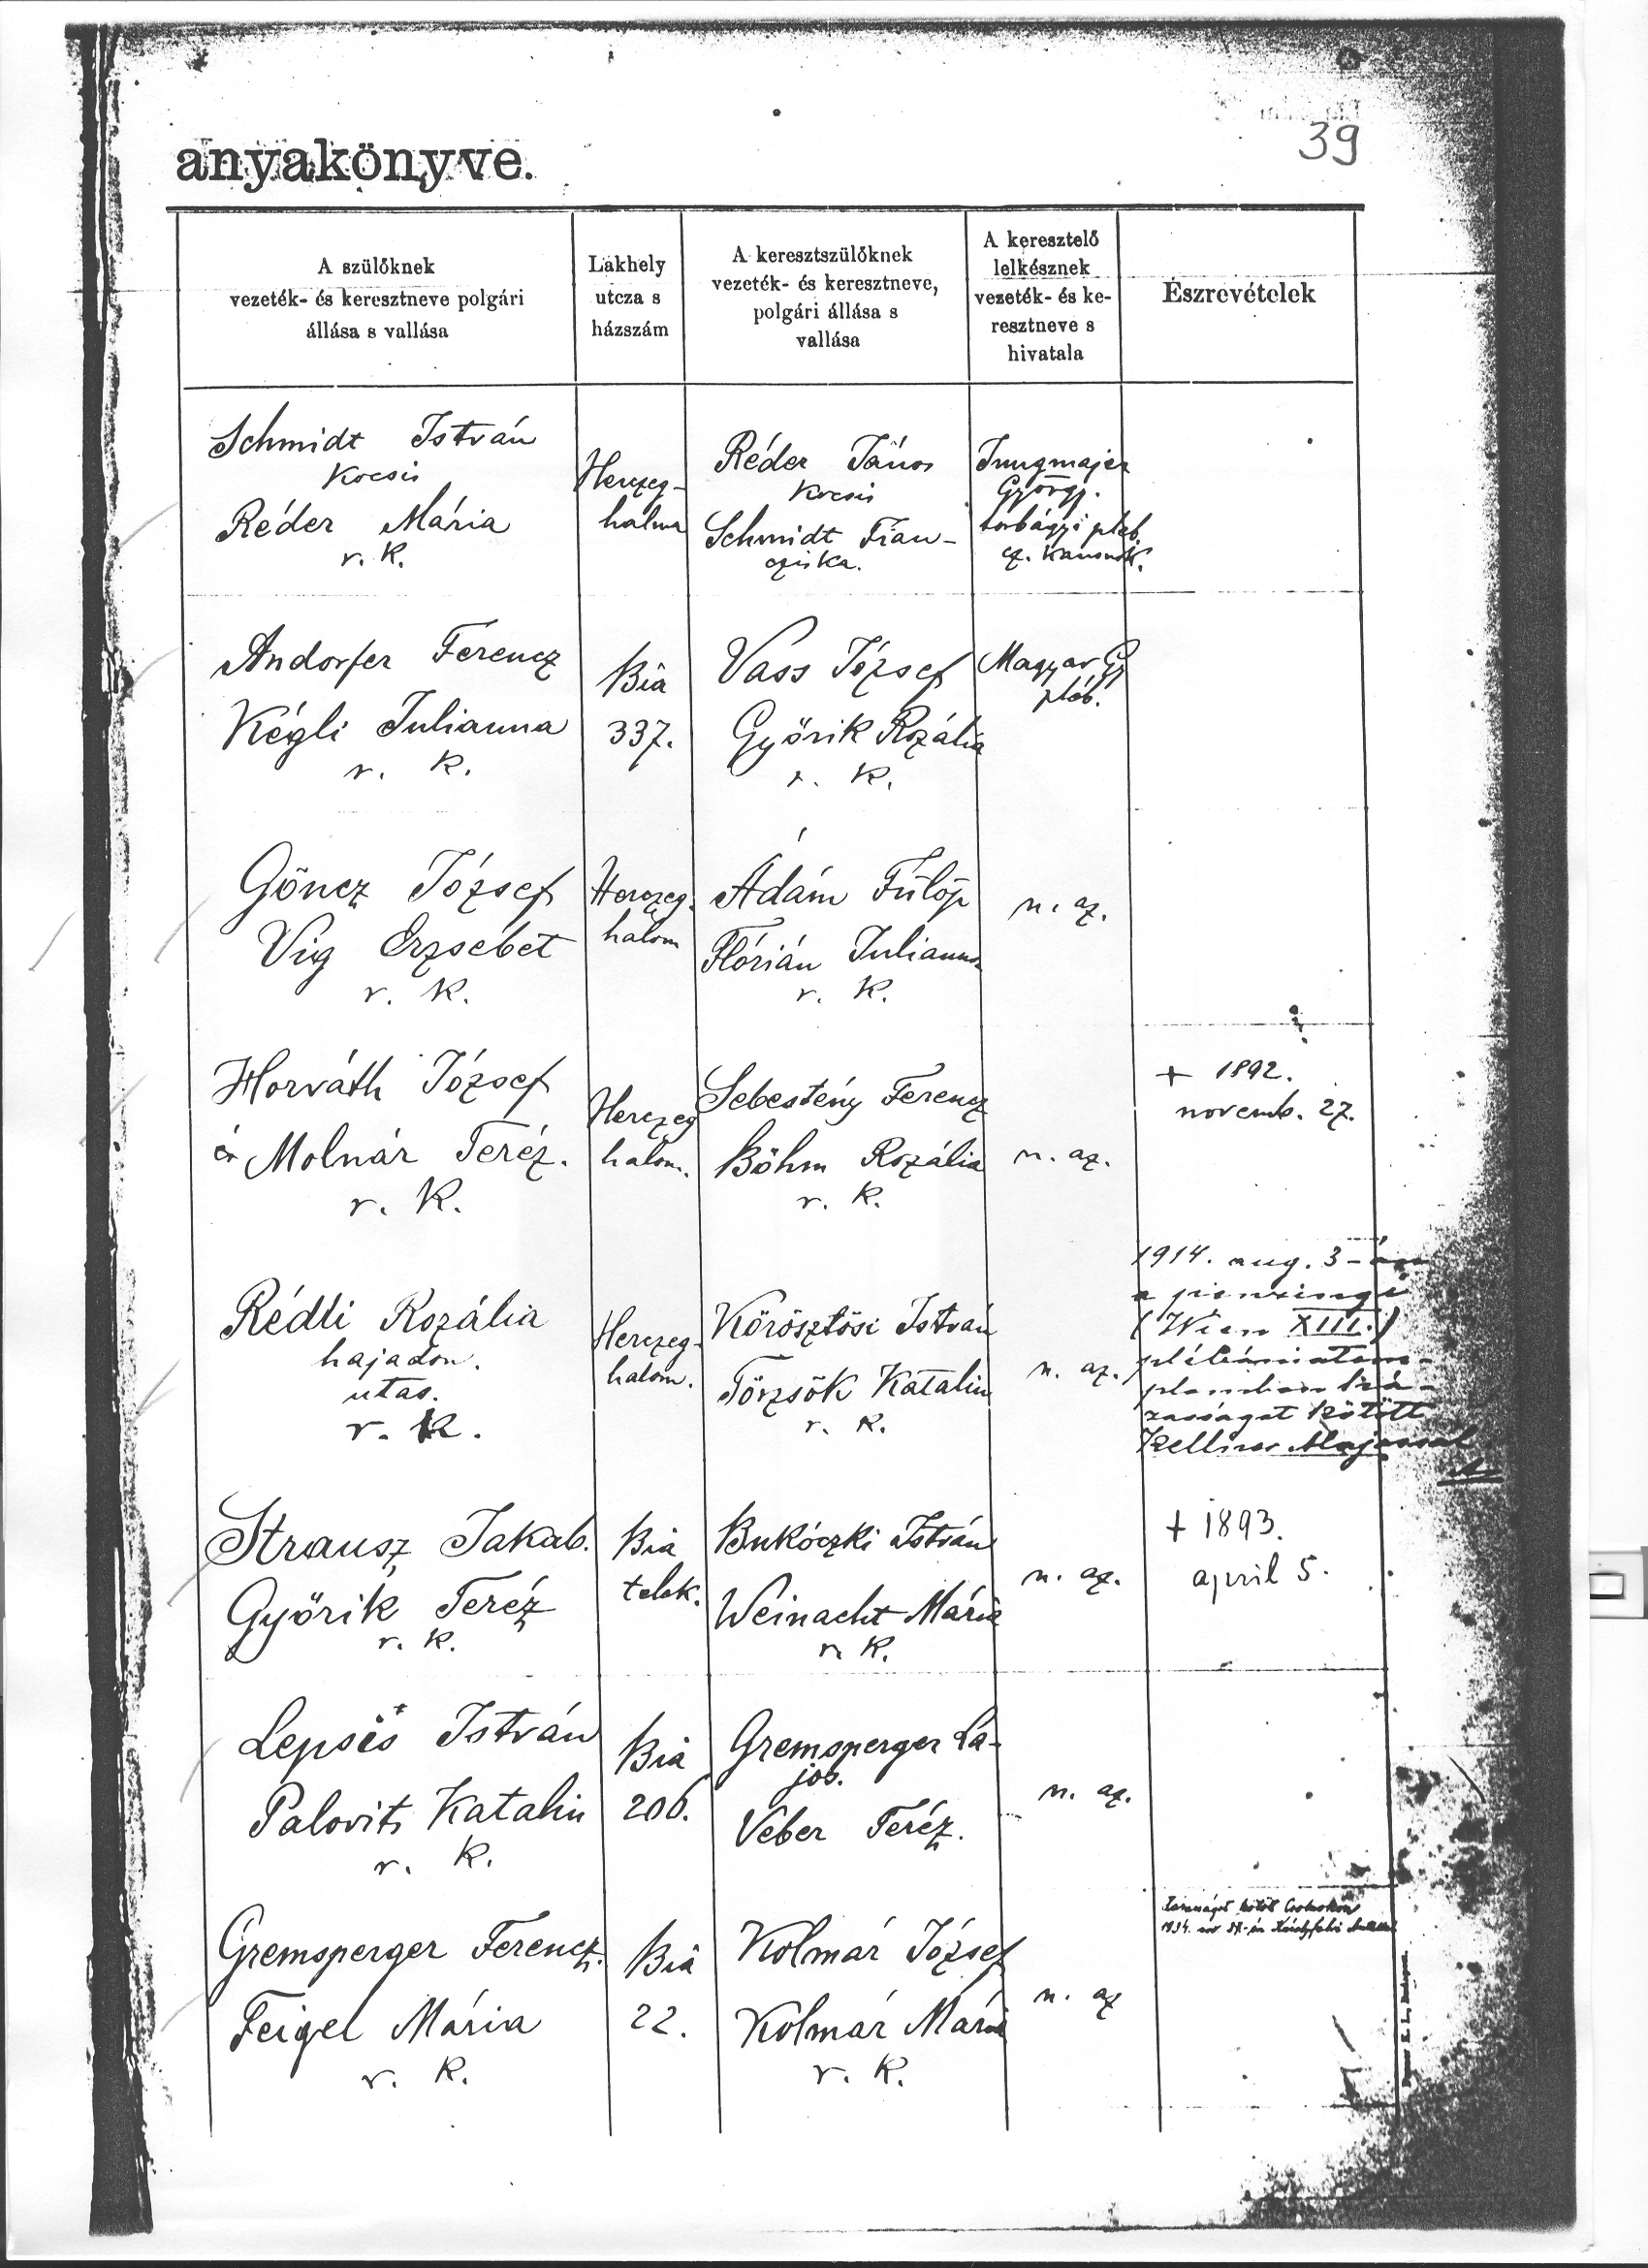 39
anyakönyve.
A szülőknek
vezeték- és keresztneve polgári
állása s vallása
Lakhely
utcza s
házszám
A keresztszülőknek
vezeték- és keresztneve,
polgári állása s
vallása
A keresztelő
lelkésznek
vezeték- és ke-
resztneve s
hivatala
Észrevételek
Schmidt István
kocsis
Réder Mária
r. k.
Herczeg-
halma
Réder János
kocsis
Schmidt Fran-
cziska.
Jungmajer
György.
torbágyi pléb.
cz. kanonok.
Andorfer Ferencz
Kégli Julianna
r. k.
Bia
337.
Vass József
Győrik Rozália
r. k.
Magyar Gy
pléb.
Göncz József
Vig Erzsébet
r. k.
Herczeg-
halom
Ádám Fülöp
Flórián Julianna
r. k.
u. az.
Horváth József
és Molnár Teréz.
r. k.
Herczeg
halom.
Sebestény Ferencz
Böhm Rozália
r. k.
u. az.
+ 1892.
novemb. 27.
Rédli Rozália
hajadon.
utas.
r. k.
Herczeg-
halom.
Körösztösi István
Törzsök Katalin
r. k.
u. az.
1914. aug. 3-án
a penzingi
(Wien XIII.)
plébániatem-
plomban há-
zasságot kötött
Strausz Jakab.
Győrik Teréz
r. k.
Bia
telek.
Bukóczki István
Weinacht Mária
r. k.
u. az.
+ 1893.
april 5.
Lepsés István
Palovits Katalin
r. k.
Bia
206.
Gremsperger La-
jos.
Véber Teréz.
u. az.
Gremsperger Ferencz.
Feigel Mária
r. k.
Bia
22.
Kolmár József
Kolmár Mária
r. k.
u. az